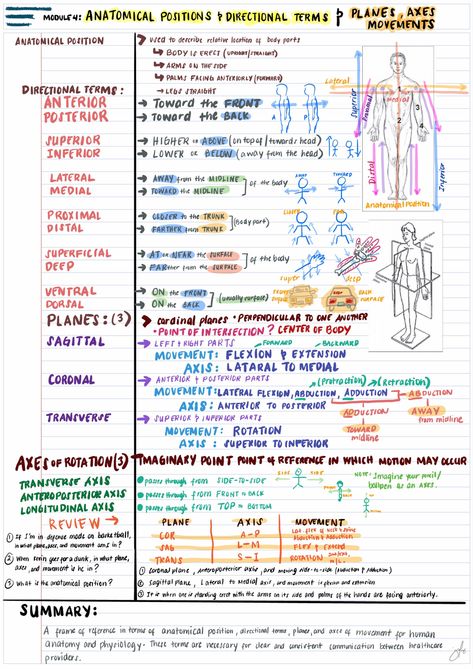 MODULE 4: ANATOMICAL POSITIONS & DIRECTIONAL TERMS & PLANES, AXES
MOVEMENTS
ANATOMICAL POSITION
used to describe relative location of body parts
→ BODY IS ERECT (UPRIGHT/STRAIGHT)
→ ARMS ON THE SIDE
→ PALMS FACING ANTERIORLY (FORWARD)
→ LEGS STRAIGHT
DIRECTIONAL TERMS:
ANTERIOR → Toward the FRONT
POSTERIOR → Toward the BACK
A P
A P
SUPERIOR → HIGHER OR ABOVE (on top of / towards head)
INFERIOR → LOWER OR BELOW (away from the head)
LATERAL → AWAY from the MIDLINE
MEDIAL → TOWARD the MIDLINE
of the body
AWAY TOWARD
PROXIMAL → CLOZER to the TRUNK
DISTAL → FARTHER from TRUNK
(body part)
SUPERFICIAL → AT or NEAR the SURFACE
DEEP → FARther from the SURFACE
of the body
SUPER DEEP
VENTRAL → ON the FRONT
DORSAL → ON the BACK
(usually surface)
FRONT BACK SURFACE
Lateral
Medial
1
2
3
4
Superior
Proximal
Distal
Inferior
Anatomical Position
PLANES: (3)
cardinal planes • PERPENDICULAR TO ONE ANOTHER
• POINT OF INTERSECTION? CENTER OF BODY
SAGITTAL
→ LEFT & RIGHT PARTS
FORWARD BACKWARD
MOVEMENT: FLEXION & EXTENSION
AXIS: LATARAL TO MEDIAL
CORONAL
→ ANTERIOR & POSTERIOR PARTS
(Protraction) (Retraction)
MOVEMENT: LATERAL FLEXION, ABDUCTION, ADDUCTION
AXIS: ANTERIOR TO POSTERIOR
ABDUCTION
AWAY from midline
ADDUCTION
TOWARD midline
TRANSVERSE
→ SUPERIOR & INFERIOR PARTS
MOVEMENT: ROTATION
AXIS: SUPERIOR TO INFERIOR
AXES OF ROTATION (3)
IMAGINARY POINT POINT OF REFERENCE IN WHICH MOTION MAY OCCUR
TRANSVERSE AXIS
passes through from SIDE-TO-SIDE
SIDE SIDE
ANTEROPOSTERIOR AXIS
passes through from FRONT to BACK
LONGITUDINAL AXIS
passes through from TOP to BOTTOM
NOTE: Imagine your pencil/
ballpen as an AXES.
REVIEW
PLANE AXIS MOVEMENT
COR A-P
Abduction & Adduction
SAG L-M FLEX & EXTEND
TRANS S-I ROTATION
① If I'm in defense mode on basketball,
in what plane, axes, and movement am I in?
② When goes for a dunk, in what plane,
axes, and movement is he in?
③ What is the anatomical position?
① Coronal plane, Anteroposterior axis, and moving side-to-side (abduction & adduction)
② Sagittal plane, Lateral to medial axis, and movement is flexion and extension
③ It is when one is standing erect with the arms on its side and palms of the hands are facing anteriorly.
SUMMARY:
A frame of reference in terms of anatomical position, directional terms, planes, and axes of movement for human
anatomy and physiology. These terms are necessary for clear and consistent communication between healthcare
providers.